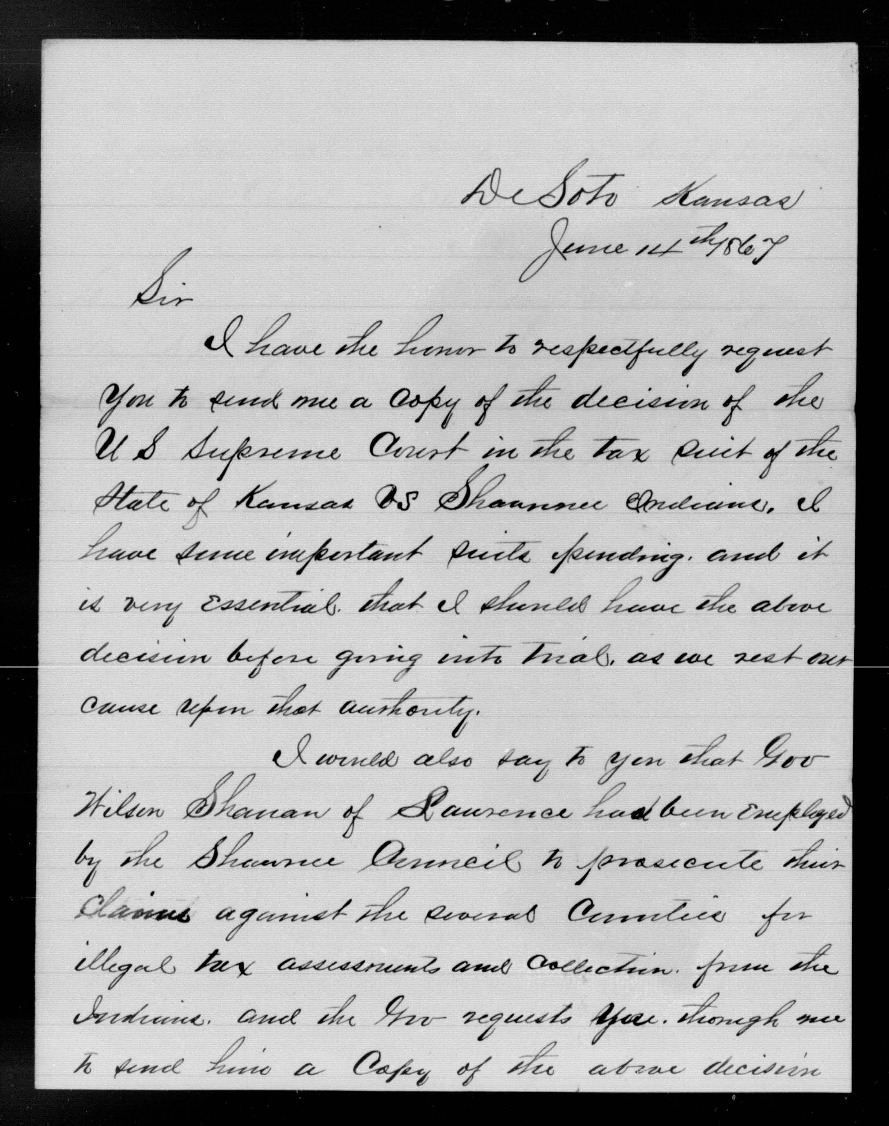 De Soto Kansas
June 14th 1867
Sir
I have the honor to respectfully request
You to send me a Copy of the decision of the
U S Supreme Court in the tax suit of the
State of Kansas VS Shawnee Indians. I
have some important suits pending. and it
is very Essential. that I should have the above
decision before going into trial. as we rest our
cause upon that authority.
I would also say to you that Gov
Wilson Shanan of Lawrence had been Employed
by the Shawnee Council to prosecute their
Claims against the several Counties for
illegal tax assessments and Collection. from the
Indians. and the Gov requests You. through me
to send him a Copy of the above decision